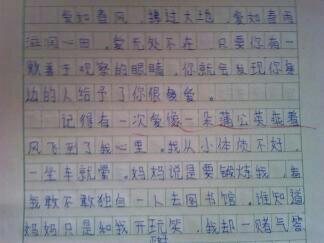 爱如春风，拂过大地，爱如春雨
滋润心田。爱无处不在，只要你有一
敝善于观察的眼睛，你就会发现你身
边的人给予了你很多爱。
记得有一次爱像一朵蒲公英拖着
风飞到了我心里。我从小体质不好，
一坐车就晕。妈妈说是要锻炼我，看
我敢不敢独自一人去图书馆。谁知道
妈妈只是和我开玩笑，我却一赌气答